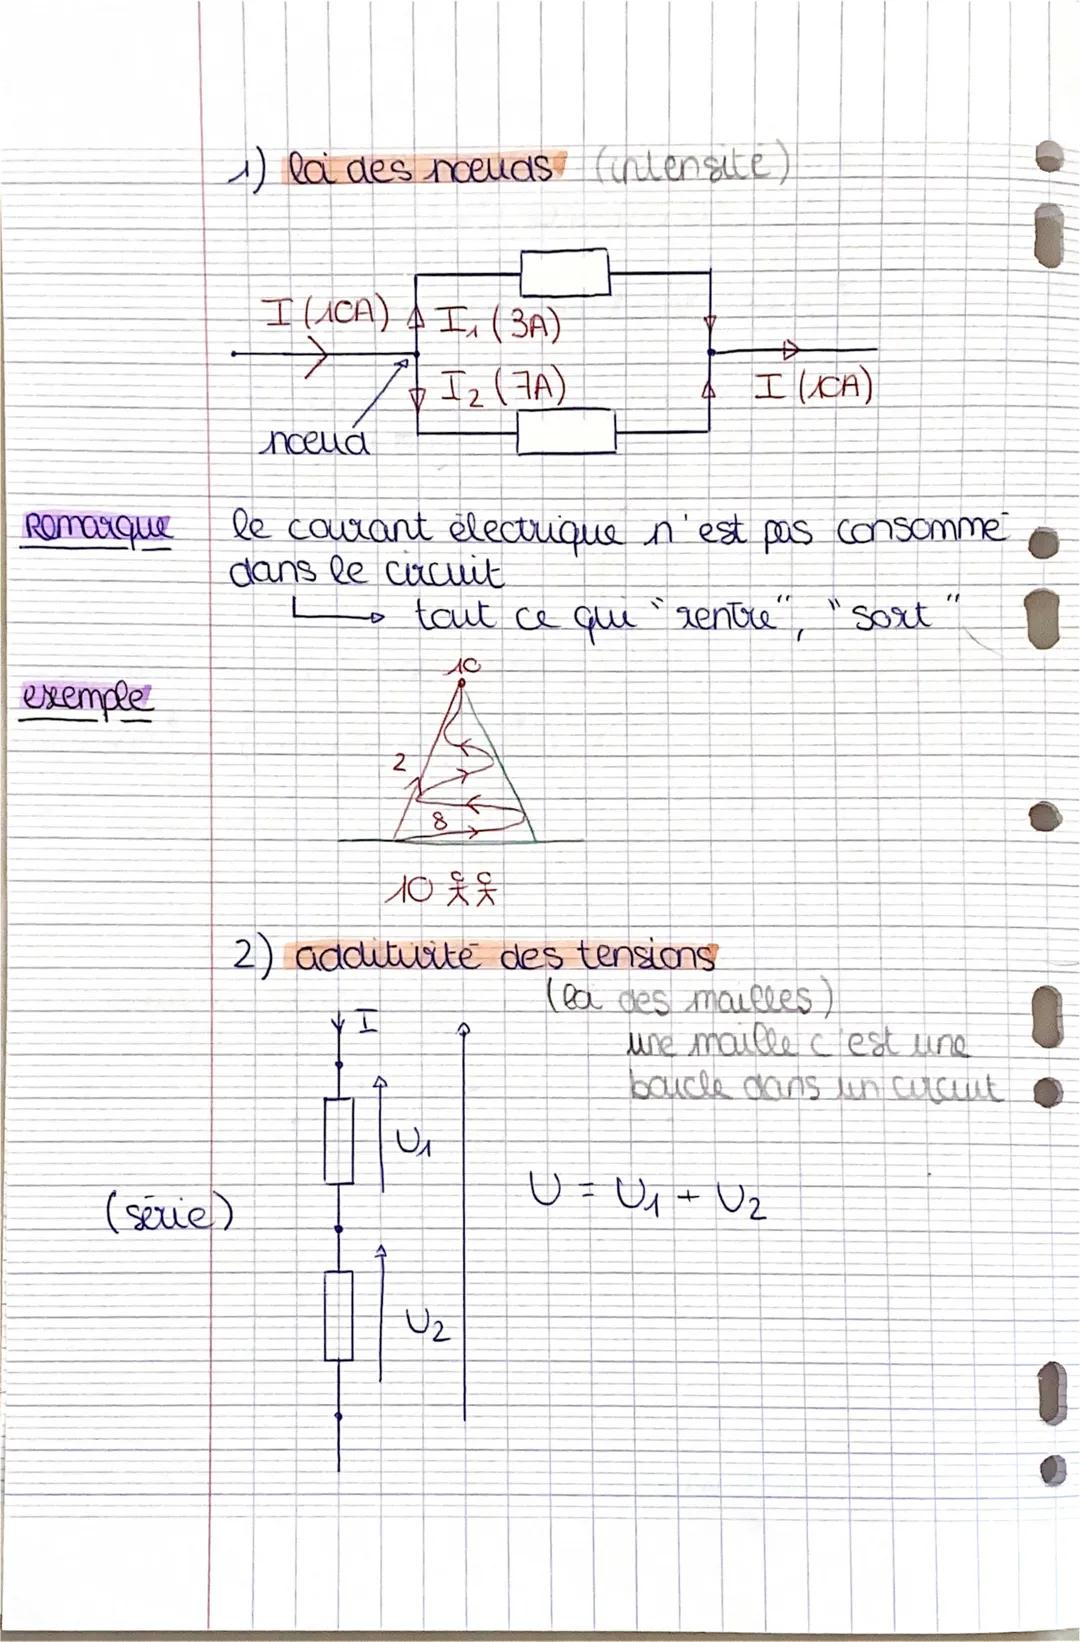 1) loi des nœuds (intensité)
I (10A)
I₁ (3A)
I₂ (7A)
I (10A)
nœud
Remarque
le courant électrique n'est pas consommé
dans le circuit
tout ce qui "rentre", "sort"
exemple
10
2
8
10
2) additivité des tensions
(loi des mailles)
une maille c'est une
boucle dans un circuit
I
U₁
(série)
U = U₁ + U₂
U₂